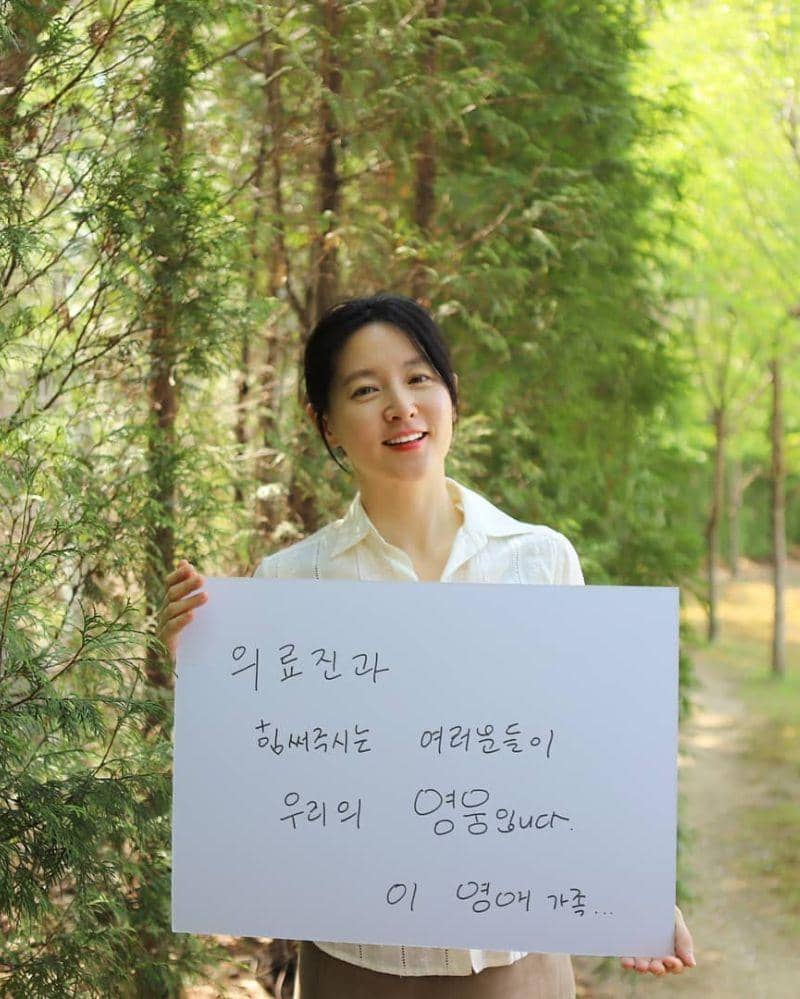 의료진과
힘써주시는 여러분들이
우리의 영웅입니다.
이 영애 가족...